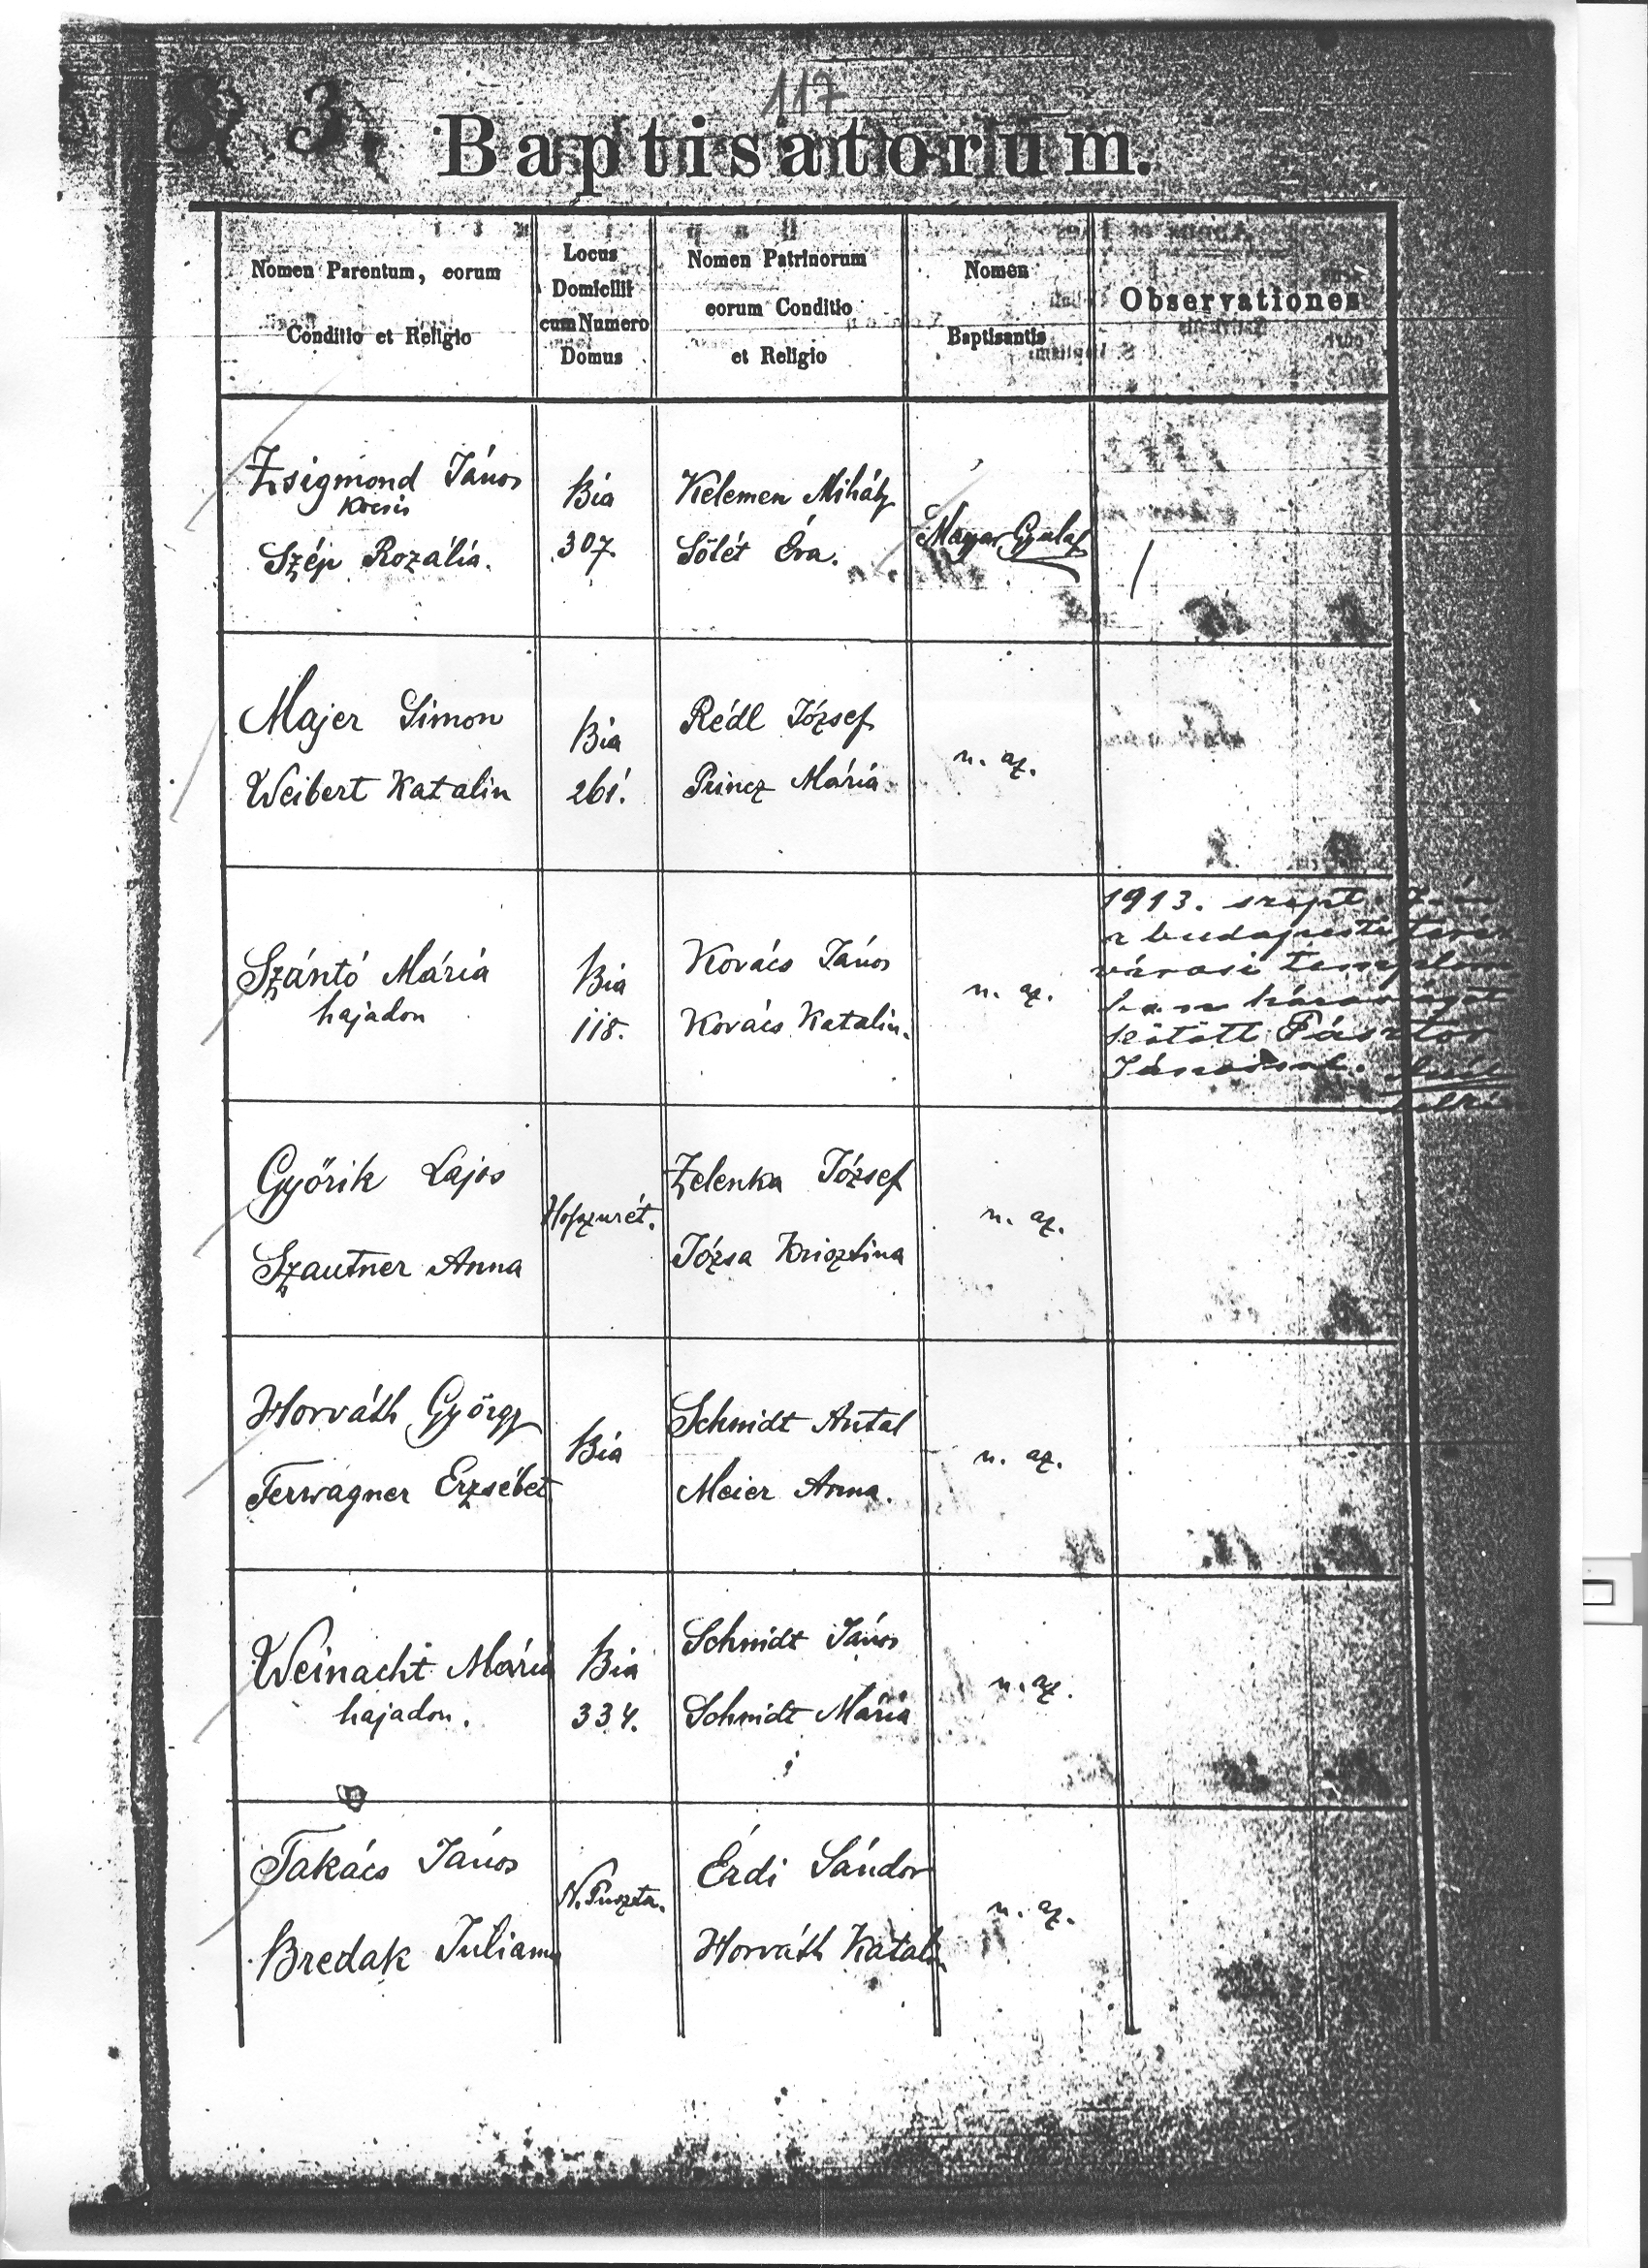 117
3.
Baptisatorium.
Nomen Parentum, eorum
Conditio et Religio
Locus
Domicilii
cum Numero
Domus
Nomen Patrinorum
eorum Conditio
et Religio
Nomen
Baptisantis
Observationes
Zsigmond János
Kocsis
Szép Rozália.
Bia
307.
Kelemen Mihály
Sölét Éva.
Magyar Gyula
Majer Simon
Weibert Katalin
Bia
261.
Rédl József
Princz Mária
n. az.
Szántó Mária
hajadon
Bia
118.
Kovács János
Kovács Katalin.
n. az.
1913. szept.
a budapesti
városi templom
ban házasságot
kötött Pásztor
Jánossal.
Győrik Lajos
Szautner Anna
Hosszurét.
Zelenka József
Józsa Krisztina
n. az.
Horváth György
Ferwagner Erzsébet
Bia
Schmidt Antal
Meier Anna.
n. az.
Weinacht Mária
hajadon.
Bia
334.
Schmidt János
Schmidt Mária
n. az.
Takács János
Bredak Julianna
N. Puszta.
Érdi Sándor
Horváth Katalin
n. az.